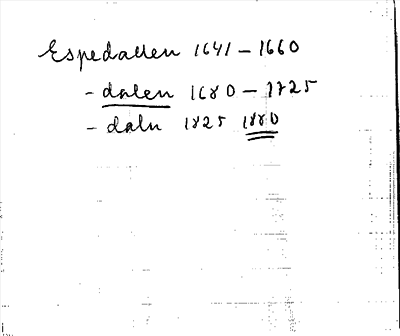 Espedallen 1641 - 1660
- dalen 1680 - 1725
- daln 1825 1880